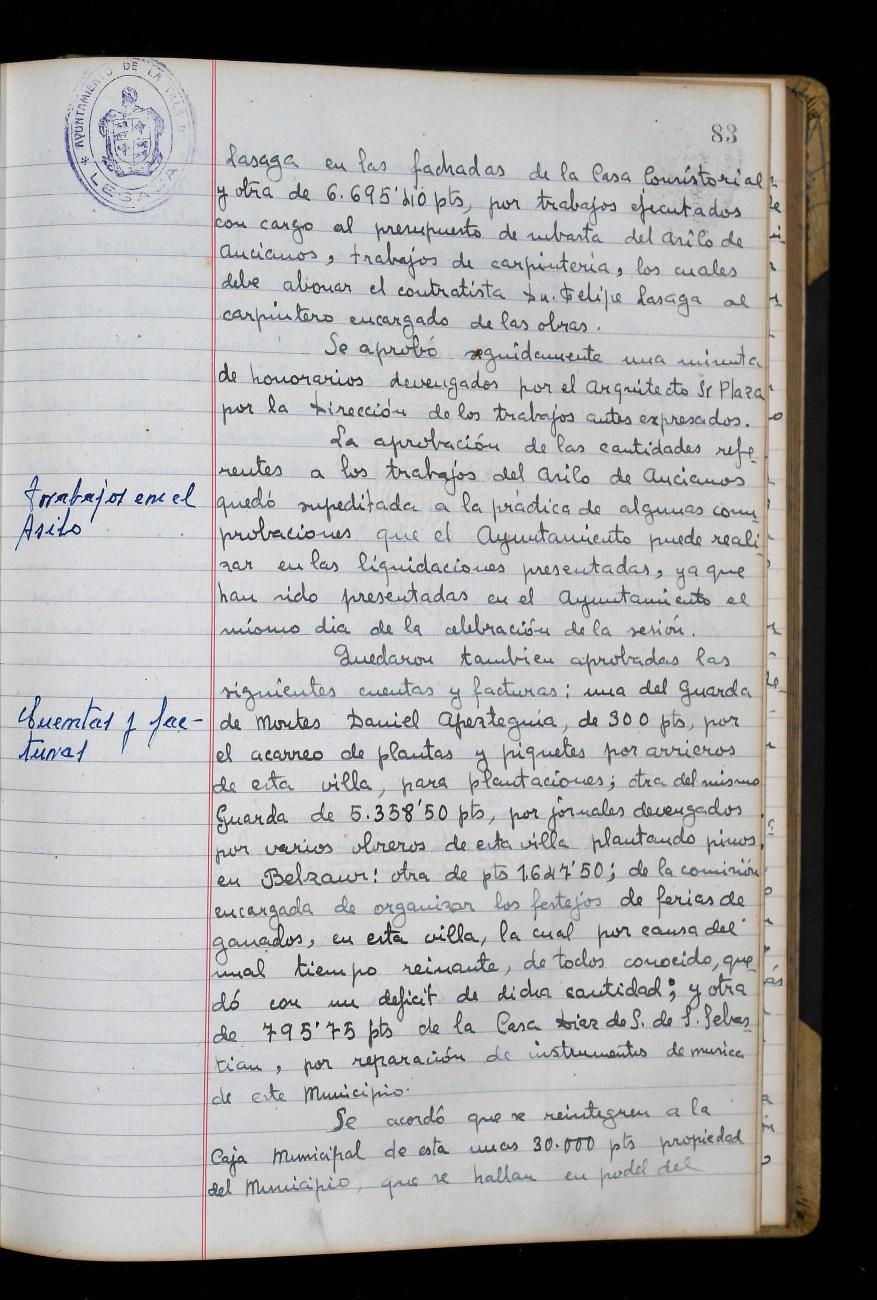 AYUNTAMIENTO DE LA VILLA D
* LESACA
83
Lasaga en las fachadas de la Casa Consistorial
y otra de 6.695'40 pts, por trabajos ejecutados
con cargo al presupuesto de subasta del Asilo de
Ancianos, trabajos de carpinteria, los cuales
debe abonar el contratista Dn. Felipe Lasaga al
carpintero encargado de las obras.
Se aprobó seguidamente una minuta
de honorarios devengados por el Arquitecto Sr Plaza
por la Dirección de los trabajos antes expresados.
La aprobación de las cantidades refe-
rentes a los trabajos del Asilo de Ancianos
Trabajos en el
Asilo
quedó supeditada a la práctica de algunas com-
probaciones que el Ayuntamiento puede reali-
zar en las liquidaciones presentadas, ya que
han sido presentadas en el Ayuntamiento el
mismo dia de la celebración de la sesión.
Quedaron tambien aprobadas las
siguientes cuentas y facturas: una del Guarda
Cuentas y fac-
turas
de Montes Daniel Apezteguia, de 300 pts, por
el acarreo de plantas y piquetes por arrieros
de esta villa, para plantaciones; otra del mismo
Guarda de 5.358'50 pts, por jornales devengados
por varios obreros de esta villa plantando pinos,
en Belzaur: otra de pts 1.647'50; de la comisión
encargada de organizar los festejos de ferias de
ganados, en esta villa, la cual por causa del
mal tiempo reinante, de todos conocido, que-
dó con un deficit de dicha cantidad; y otra
de 795'75 pts de la Casa Diez de S. de S. Sebas-
tian, por reparación de instrumentos de musica
de este Municipio.
Se acordó que se reintegren a la
Caja Municipal de esta unas 30.000 pts propiedad
del Municipio, que se hallan en poder del